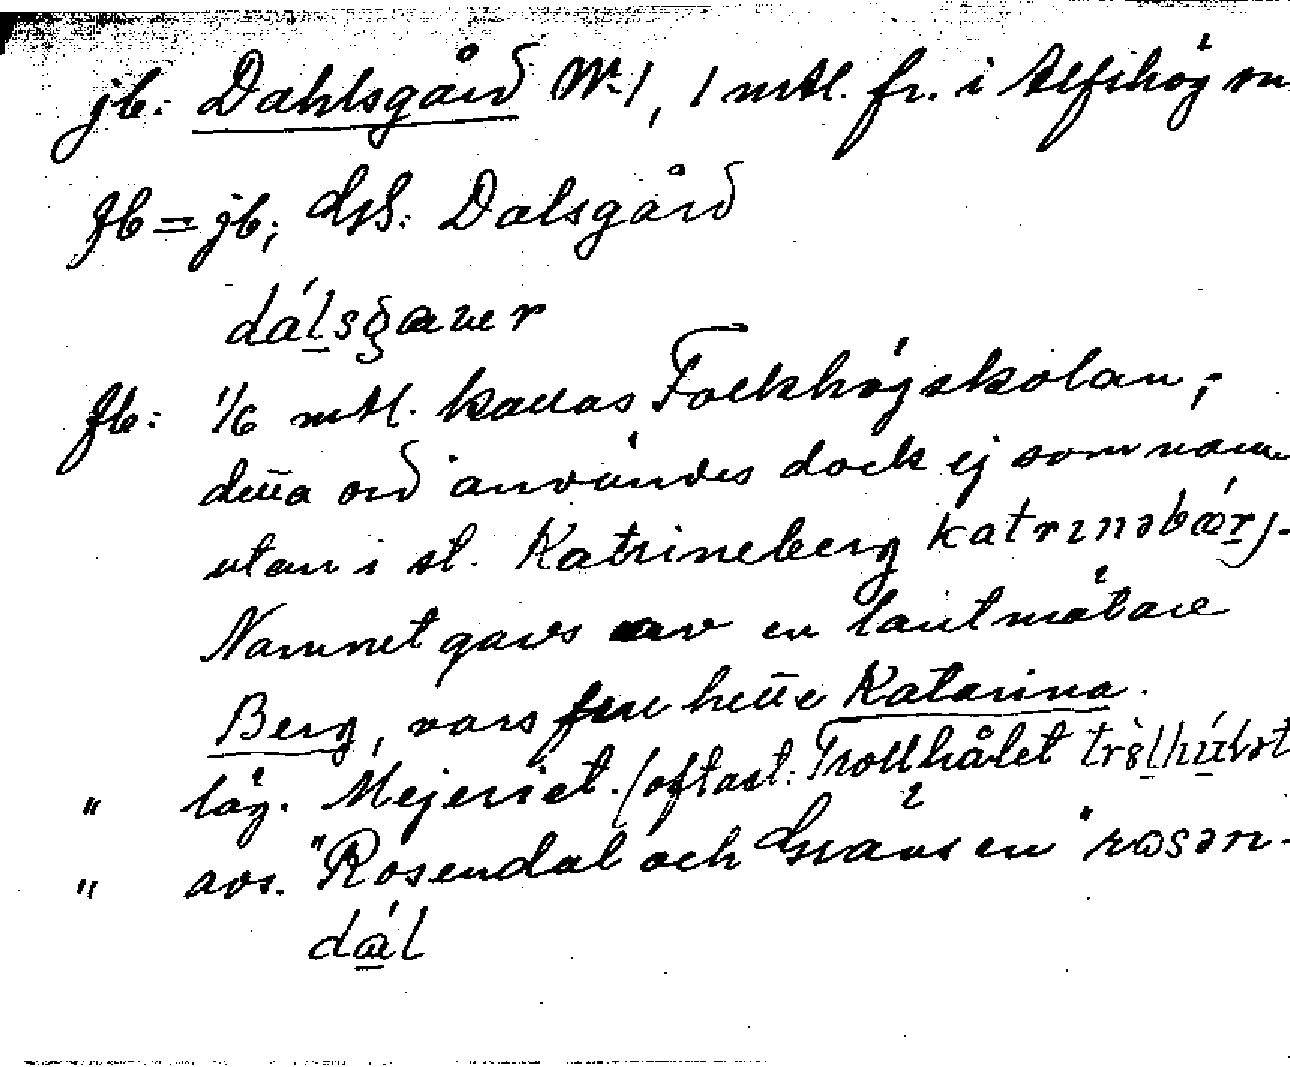 jb: Dahlsgård Nr 1, 1 mtl. fr. i Alfshög sn
fb = jb; GS: Dalsgård
dálsgaur
fb: 1/6 mtl. kallas Folkhögskolan,
detta ord användes dock ej som namn
utan i st. Katrineberg katrinəbǽrj.
Namnet gavs av en lantmätare
Berg, vars fru hette Katarina.
" läg. Mejeriet. (oftast: Trollhålet
" avs. "Rosendal och Gränsen" rosən-
dál